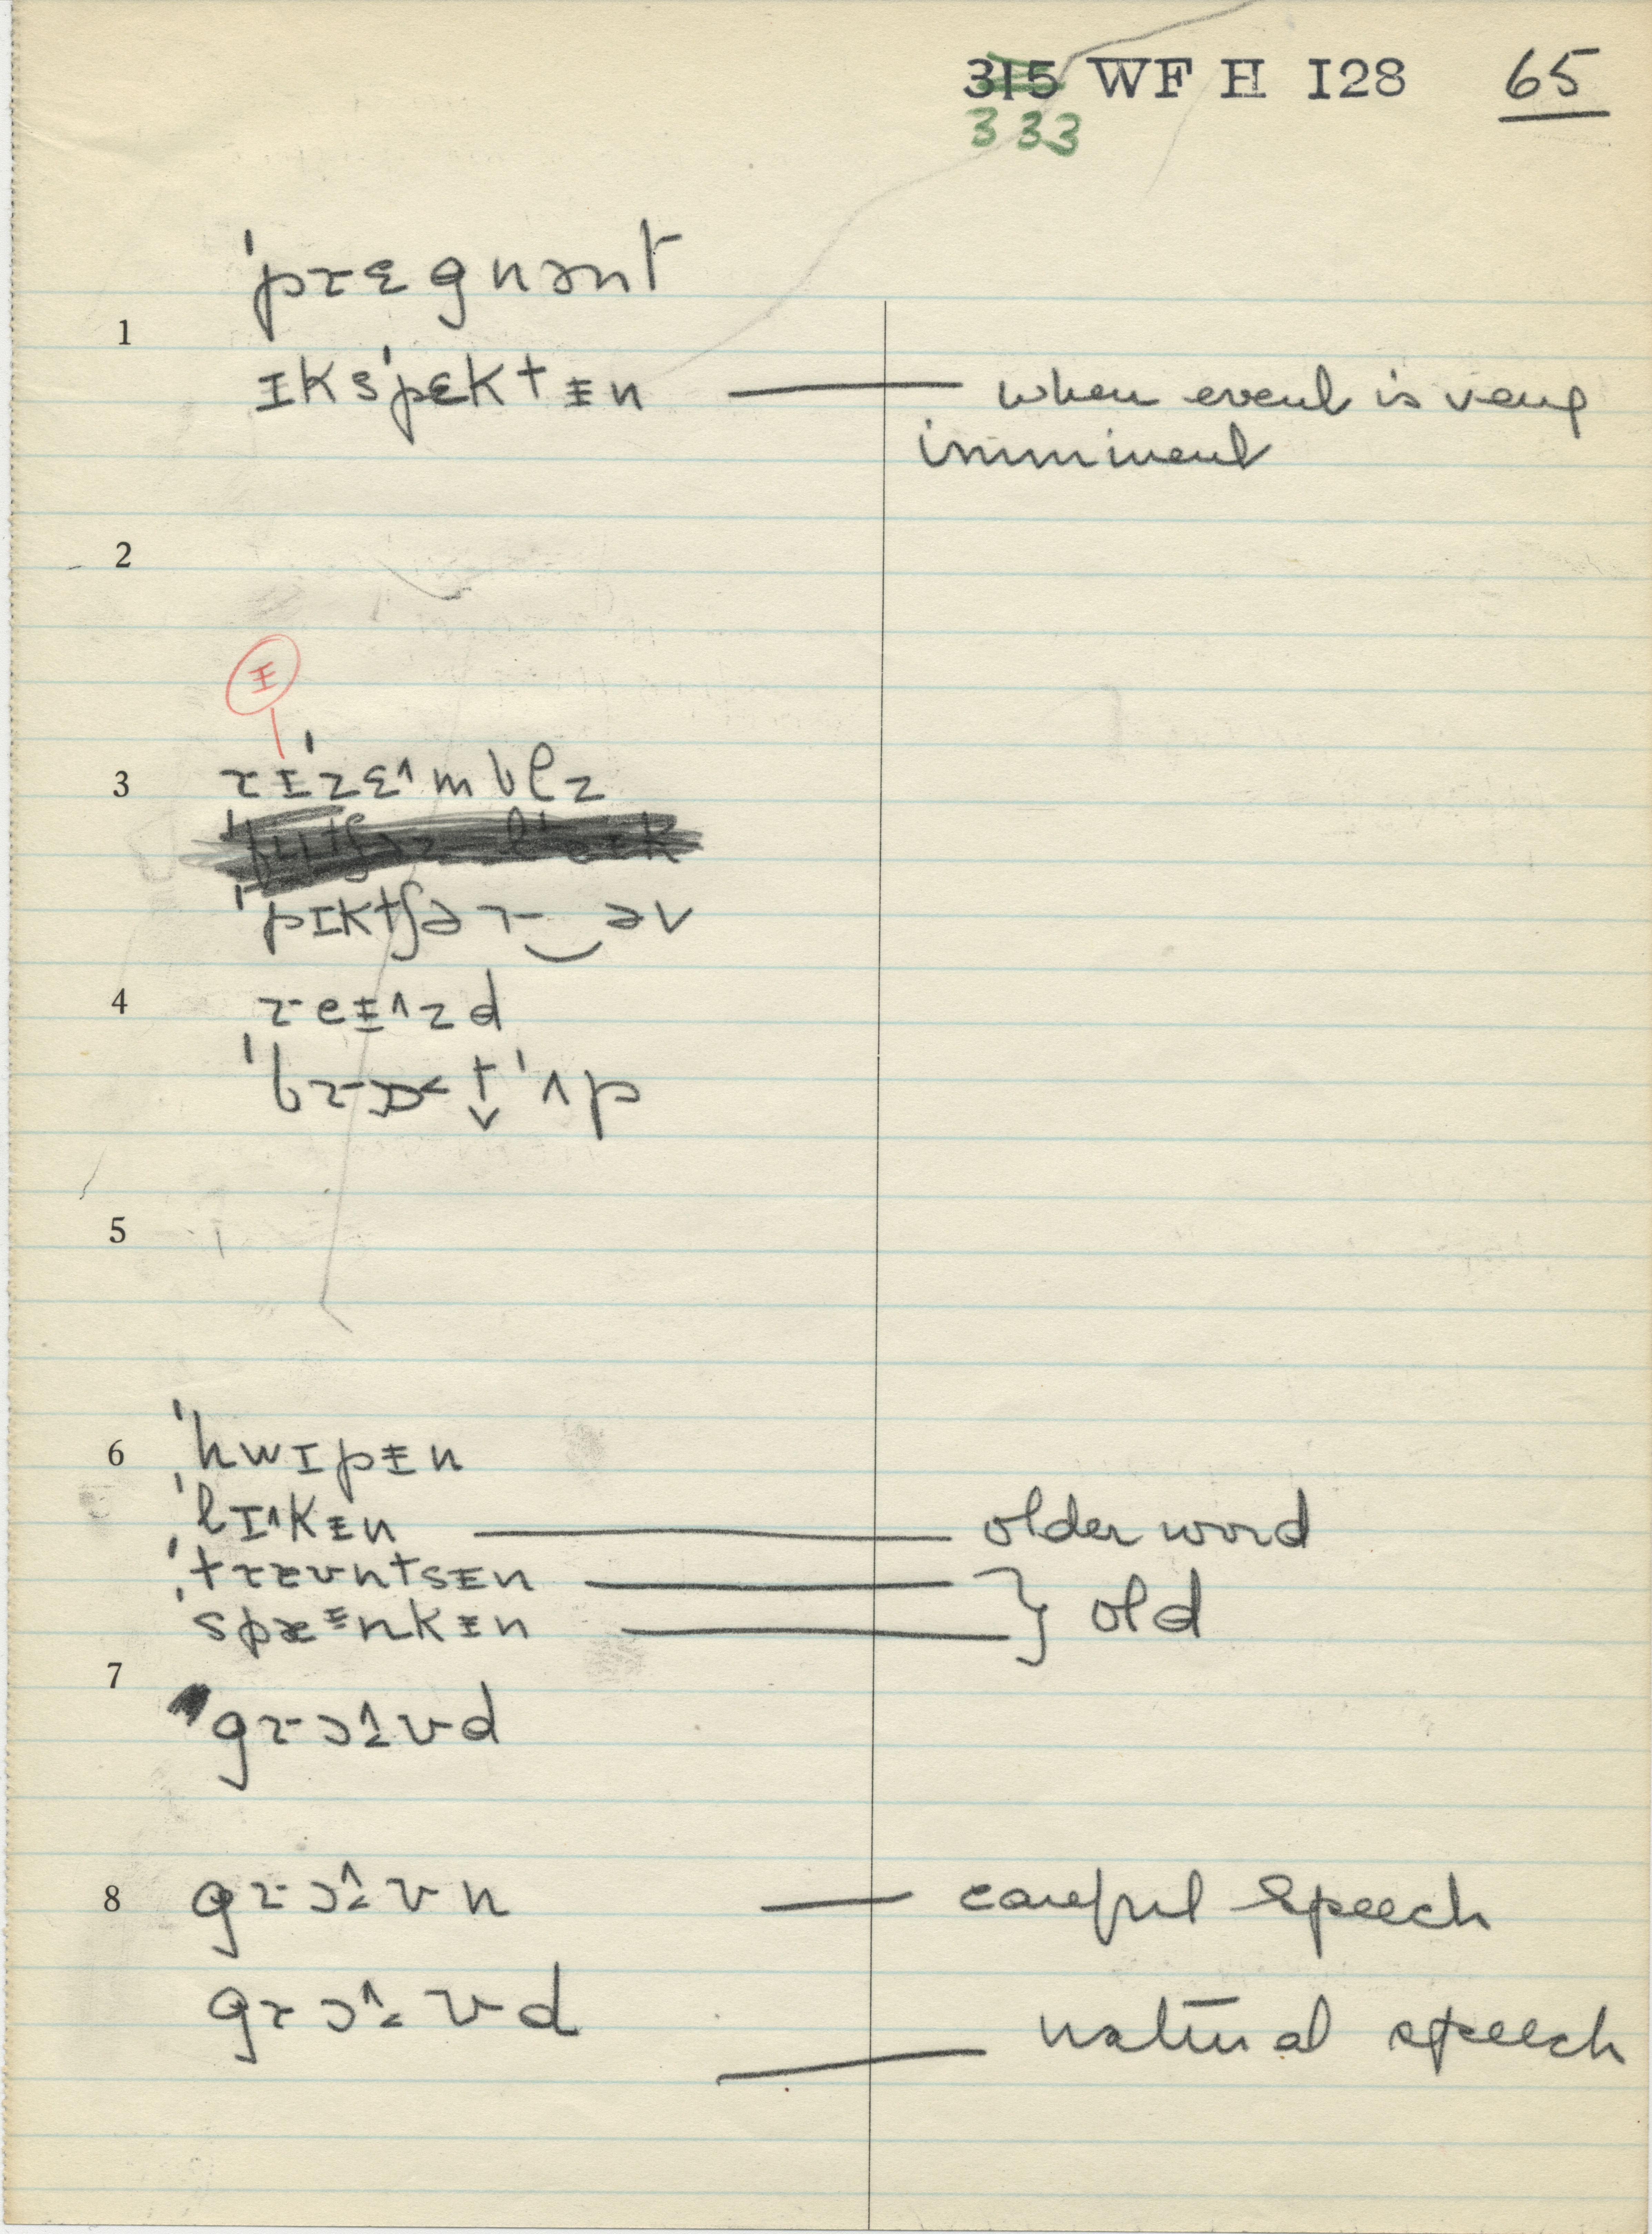 315 WF H I28 65
333
ˈprɛgnənt
1
ɪksˈpɛktᵻn — when event is very
imminent
2
ᵻ
3 rɪˈzɛ˄mblz
ˈpɪktʃər‿əv
4 reᵻ˄zd
ˈbrɒ˂t̬ ˈʌp
5
6 ˈhwɪpᵻn
ˈlɪ˄kᵻn — older word
ˈtræʊntsᵻn — } old
ˈspæᵻnkᵻn —
7
grɔ˄ʊd
8 grɔ˄ʊn — careful speech
grɔ˄ʊd — natural speech